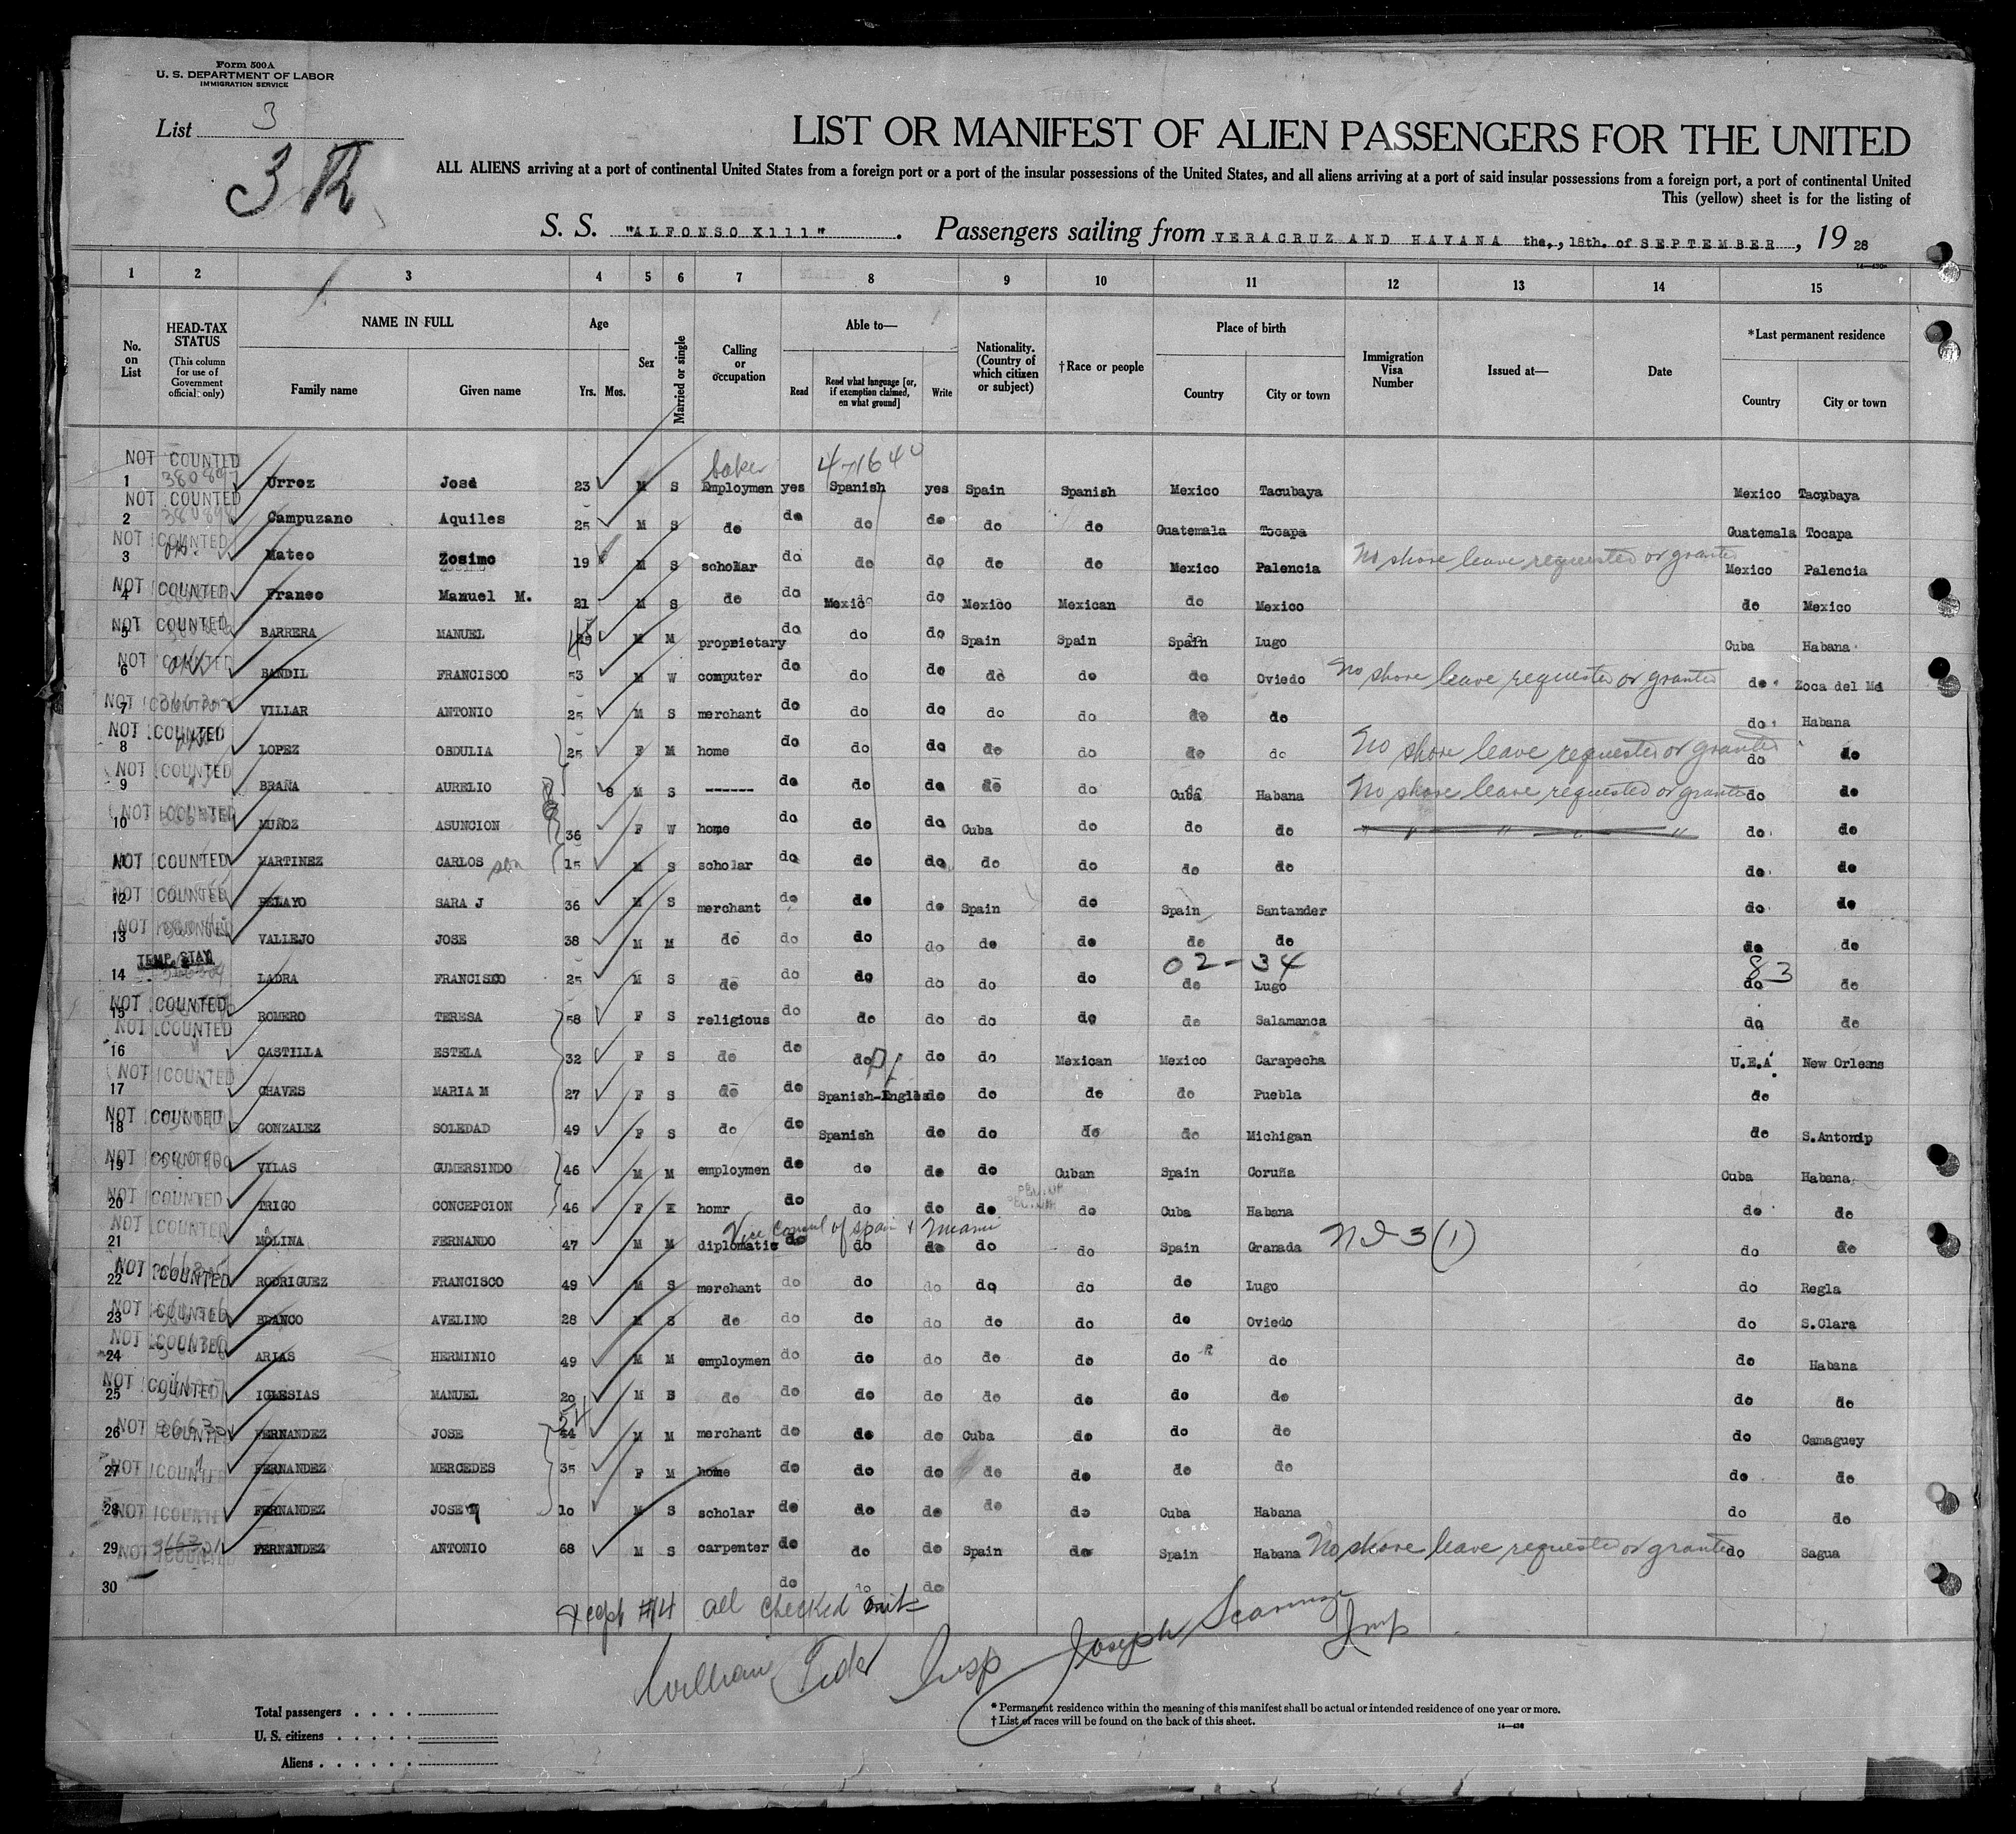 Form 500A
U. S. DEPARTMENT OF LABOR
IMMIGRATION SERVICE
List 3
3
LIST OR MANIFEST OF ALIEN PASSENGERS FOR THE UNITED
ALL ALIENS arriving at a port of continental United States from a foreign port or a port of the insular possessions of the United States, and all aliens arriving at a port of said insular possessions from a foreign port, a port of continental United
This (yellow) sheet is for the listing of
S. S. "ALFONSO X111" . Passengers sailing from VERACRUZ AND HAVANA the, 18th. of SEPTEMBER, 19 28
1 2 3 4 5 6 7 8 9 10 11 12 13 14 15
No. on List
HEAD-TAX STATUS (This column for use of Government officials only)
NAME IN FULL
Family name Given name
Age Yrs. Mos.
Sex
Married or single
Calling or occupation
Able to—
Read Read what language [or, if exemption claimed, on what ground] Write
Nationality. (Country of which citizen or subject)
†Race or people
Place of birth
Country City or town
Immigration Visa Number
Issued at—
Date
*Last permanent residence
Country City or town
baker 4-71640
NOT COUNTED
1 Urrez José 23 M S Employmen yes Spanish yes Spain Spanish Mexico Tacubaya Mexico Tacubaya
NOT COUNTED
2 Campuzano Aquiles 25 M S do do do do do do Guatemala Tocapa Guatemala Tocapa
NOT COUNTED
3 Mateo Zosimo 19 M S scholar do do do do do Mexico Palencia No shore leave requested or granted Mexico Palencia
NOT COUNTED
4 Franco Manuel M. 21 M S do do Mexic do Mexico Mexican do Mexico do Mexico
NOT COUNTED
5 BARRERA MANUEL 45 M M proprietary do do do Spain Spain Spain Lugo Cuba Habana
NOT COUNTED
6 BANDIL FRANCISCO 53 M W computer do do do do do do Oviedo No shore leave requested or granted do Zoca del Md
NOT COUNTED
7 VILLAR ANTONIO 25 M S merchant do do do do do do do do Habana
NOT COUNTED
8 LOPEZ OBDULIA 25 F M home do do do do do do do No shore leave requested or granted do do
NOT COUNTED
9 BRAÑA AURELIO 8 M S ------ do do do do do Cuba Habana No shore leave requested or granted do do
NOT COUNTED
10 MUÑOZ ASUNCION 36 F W home do do do Cuba do do do " " " " " do do
NOT COUNTED
11 MARTINEZ CARLOS son 15 M S scholar do do do do do do do do do
NOT COUNTED
12 PELAYO SARA J 36 M S merchant do do do Spain do Spain Santander do do
NOT COUNTED
13 VALLEJO JOSE 38 M M do do do do do do do do do do
TEMP. STAY 02-34 83
14 LADRA FRANCISCO 25 M S do do do do do do do Lugo do do
NOT COUNTED
15 ROMERO TERESA 58 F S religious do do do do do do Salamanca do do
NOT COUNTED
16 CASTILLA ESTELA 32 F S do do do do do Mexican Mexico Carapecha U.E.A. New Orleans
NOT COUNTED
17 CHAVES MARIA M 27 F S do do Spanish-Ingles do do do do Puebla do
NOT COUNTED
18 GONZALEZ SOLEDAD 49 F S do do Spanish do do do do Michigan do S.Antonip
NOT COUNTED
19 VILAS GUMERSINDO 46 M M employmen do do do do Cuban Spain Coruña Cuba Habana
NOT COUNTED
20 TRIGO CONCEPCION 46 F M homr do do do do do Cuba Habana do do
NOT COUNTED Vice Consul of Spain + Miami
21 MOLINA FERNANDO 47 M M diplomatic do do do do do Spain Granada do do
NOT COUNTED
22 RODRIGUEZ FRANCISCO 49 M S merchant do do do do do do Lugo do Regla
NOT COUNTED
23 BLANCO AVELINO 28 M S do do do do do do do Oviedo do S.Clara
NOT COUNTED
24 ARIAS HERMINIO 49 M M employmen do do do do do do do do Habana
NOT COUNTED
25 IGLESIAS MANUEL 20 M S do do do do do do do do do do
NOT COUNTED 54
26 FERNANDEZ JOSE 44 M M merchant do do do Cuba do do do do Camaguey
NOT COUNTED
27 FERNANDEZ MERCEDES 35 F M home do do do do do do do do do
NOT COUNTED
28 FERNANDEZ JOSE M 10 M S scholar do do do do do Cuba Habana do do
NOT COUNTED
29 FERNANDEZ ANTONIO 68 M S carpenter do do do Spain do Spain Habana No shore leave requested or granted do Sagua
30 do do do
#14 all checked out
William Insp Joseph
Total passengers . . . .
U. S. citizens . . . . .
Aliens . . . . . .
*Permanent residence within the meaning of this manifest shall be actual or intended residence of one year or more.
†List of races will be found on the back of this sheet.
14—430